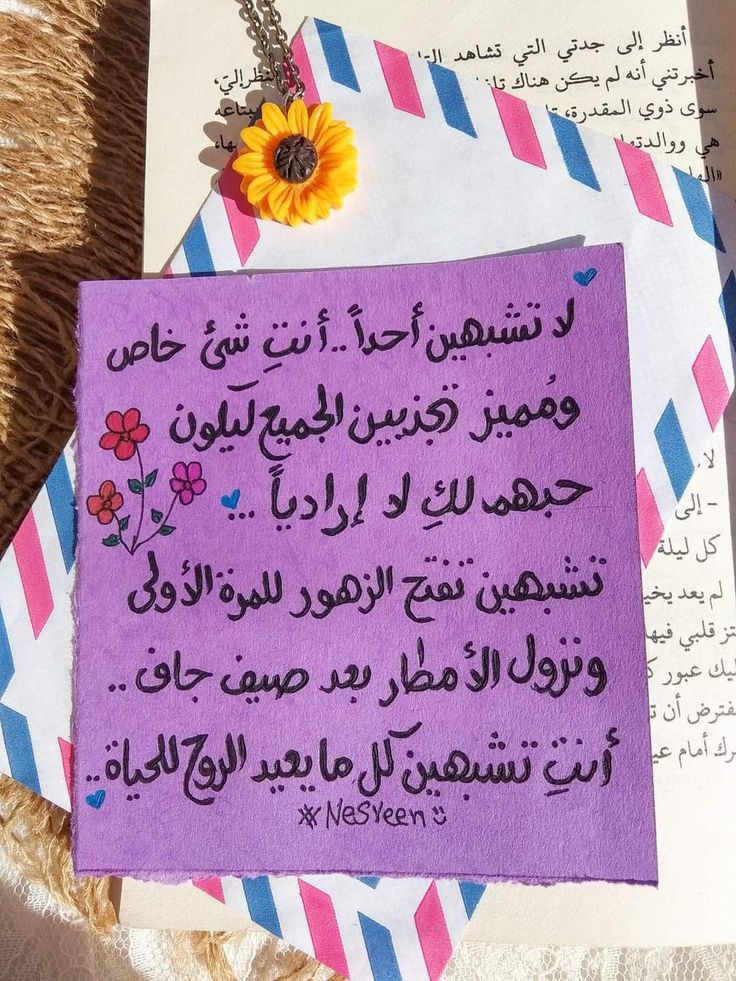 أنظر إلى جدتي التي تشاهد
أخبرتني أنه لم يكن هناك
سوى ذوي المقدرة،
هي ووالدتها
لا تشبهين أحداً..أنتِ شئ خاص
ومُميز تجذبين الجميع ليكون
حبهم لكِ لا إرادياً ...
تشبهين تفتح الزهور للمرة الأولى
ونزول الأمطار بعد صيف جاف ..
أنتِ تشبهين كل ما يعيد الروح للحياة..
#Nesreen
- إلى
كل ليلة
لم يعد
قلبي فيها
عبور
أن
أمام